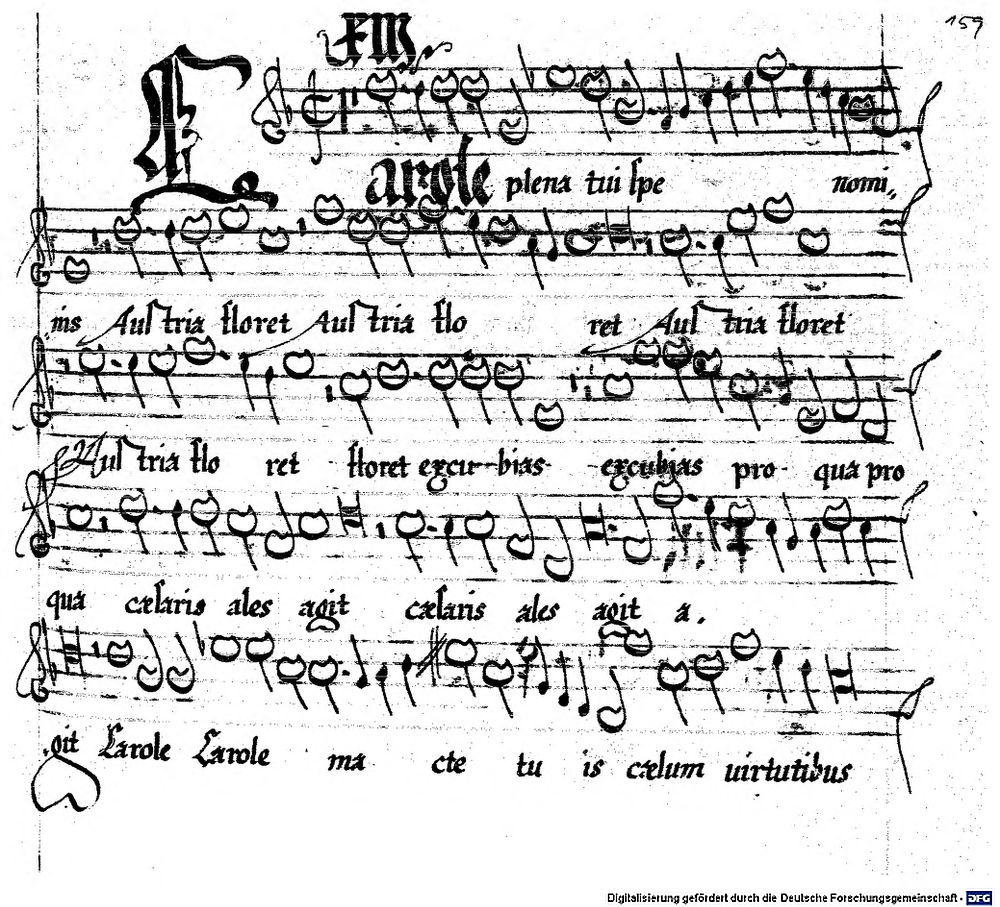 159
XIII
Carole plena tui spe nomi,,
nis Austria floret Austria flo ret Austria floret
Austria flo ret floret excu-bias excubias pro qua pro
qua cæsaris ales agit cæsaris ales agit a.
.git Carole Carole ma cte tu is cælum uirtutibus
Digitalisierung gefördert durch die Deutsche Forschungsgemeinschaft - DFG